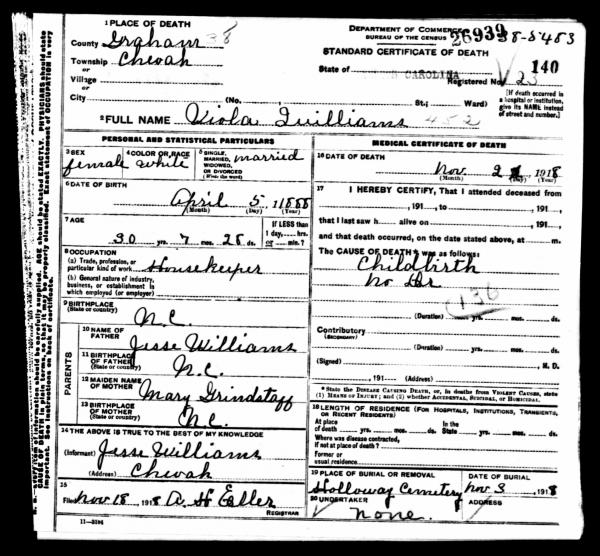 1 PLACE OF DEATH
County Graham 38
Township Cheoah
or
Village
or
City (No. St.; Ward)
2 FULL NAME Viola Williams 452
DEPARTMENT OF COMMERCE
BUREAU OF THE CENSUS
26939
38-5453
STANDARD CERTIFICATE OF DEATH
State of N CAROLINA
140
Registered No. 23
[If death occurred in a hospital or institution, give its NAME instead of street and number.]
PERSONAL AND STATISTICAL PARTICULARS
3 SEX female
4 COLOR OR RACE white
5 SINGLE, MARRIED, WIDOWED, OR DIVORCED (Write the word) married
6 DATE OF BIRTH
April 5, 1888
(Month) (Day) (Year)
7 AGE
30 yrs. 7 mos. 28 ds.
If LESS than
1 day, hrs.
or min.?
8 OCCUPATION
(a) Trade, profession, or
particular kind of work Housekeeper
(b) General nature of industry,
business, or establishment in
which employed (or employer)
9 BIRTHPLACE
(State or country) N.C.
PARENTS
10 NAME OF
FATHER Jesse Williams
11 BIRTHPLACE
OF FATHER
(State or country) N.C.
12 MAIDEN NAME
OF MOTHER Mary Grindstaff
13 BIRTHPLACE
OF MOTHER
(State or country) N.C.
14 THE ABOVE IS TRUE TO THE BEST OF MY KNOWLEDGE
(Informant) Jesse Williams
(Address) Cheoah
15
Filed Nov 18 1918 A H Eller
REGISTRAR
11-3184
MEDICAL CERTIFICATE OF DEATH
16 DATE OF DEATH
Nov. 2 1918
(Month) (Day) (Year)
17 I HEREBY CERTIFY, That I attended deceased from
, 191 , to , 191 ,
that I last saw h alive on , 191 ,
and that death occurred, on the date stated above, at m.
The CAUSE OF DEATH* was as follows:
Childbirth
No Dr
136
(Duration) yrs. mos. ds.
Contributory
(SECONDARY)
(Duration) yrs. mos. ds.
(Signed) , M. D.
, 191 (Address)
* State the DISEASE CAUSING DEATH, or, in deaths from VIOLENT CAUSES, state
(1) MEANS OF INJURY; and (2) whether ACCIDENTAL, SUICIDAL, or HOMICIDAL.
18 LENGTH OF RESIDENCE (FOR HOSPITALS, INSTITUTIONS, TRANSIENTS,
OR RECENT RESIDENTS)
At place
of death yrs. mos. ds. In the
State yrs. mos. ds.
Where was disease contracted,
if not at place of death?
Former or
usual residence
19 PLACE OF BURIAL OR REMOVAL
Holloway Cemetery
DATE OF BURIAL
Nov 3, 1918
20 UNDERTAKER
None.
ADDRESS